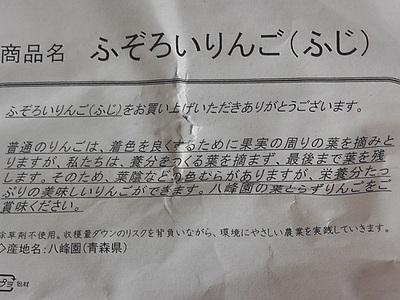 商品名 ふぞろいりんご(ふじ)
ふぞろいりんご(ふじ)をお買い上げいただきありがとうございます。
普通のりんごは、着色を良くするために果実の周りの葉を摘みと
りますが、私たちは、養分をつくる葉を摘まず、最後まで葉を残
します。そのため、葉陰などの色むらがありますが、栄養分たっ
ぷりの美味しいりんごができます。八峰園の葉とらずりんごをご
賞味ください。
除草剤不使用。収穫量ダウンのリスクを背負いながら、環境にやさしい農業を実践していきます。
◇産地名:八峰園(青森県)
プラ 包材